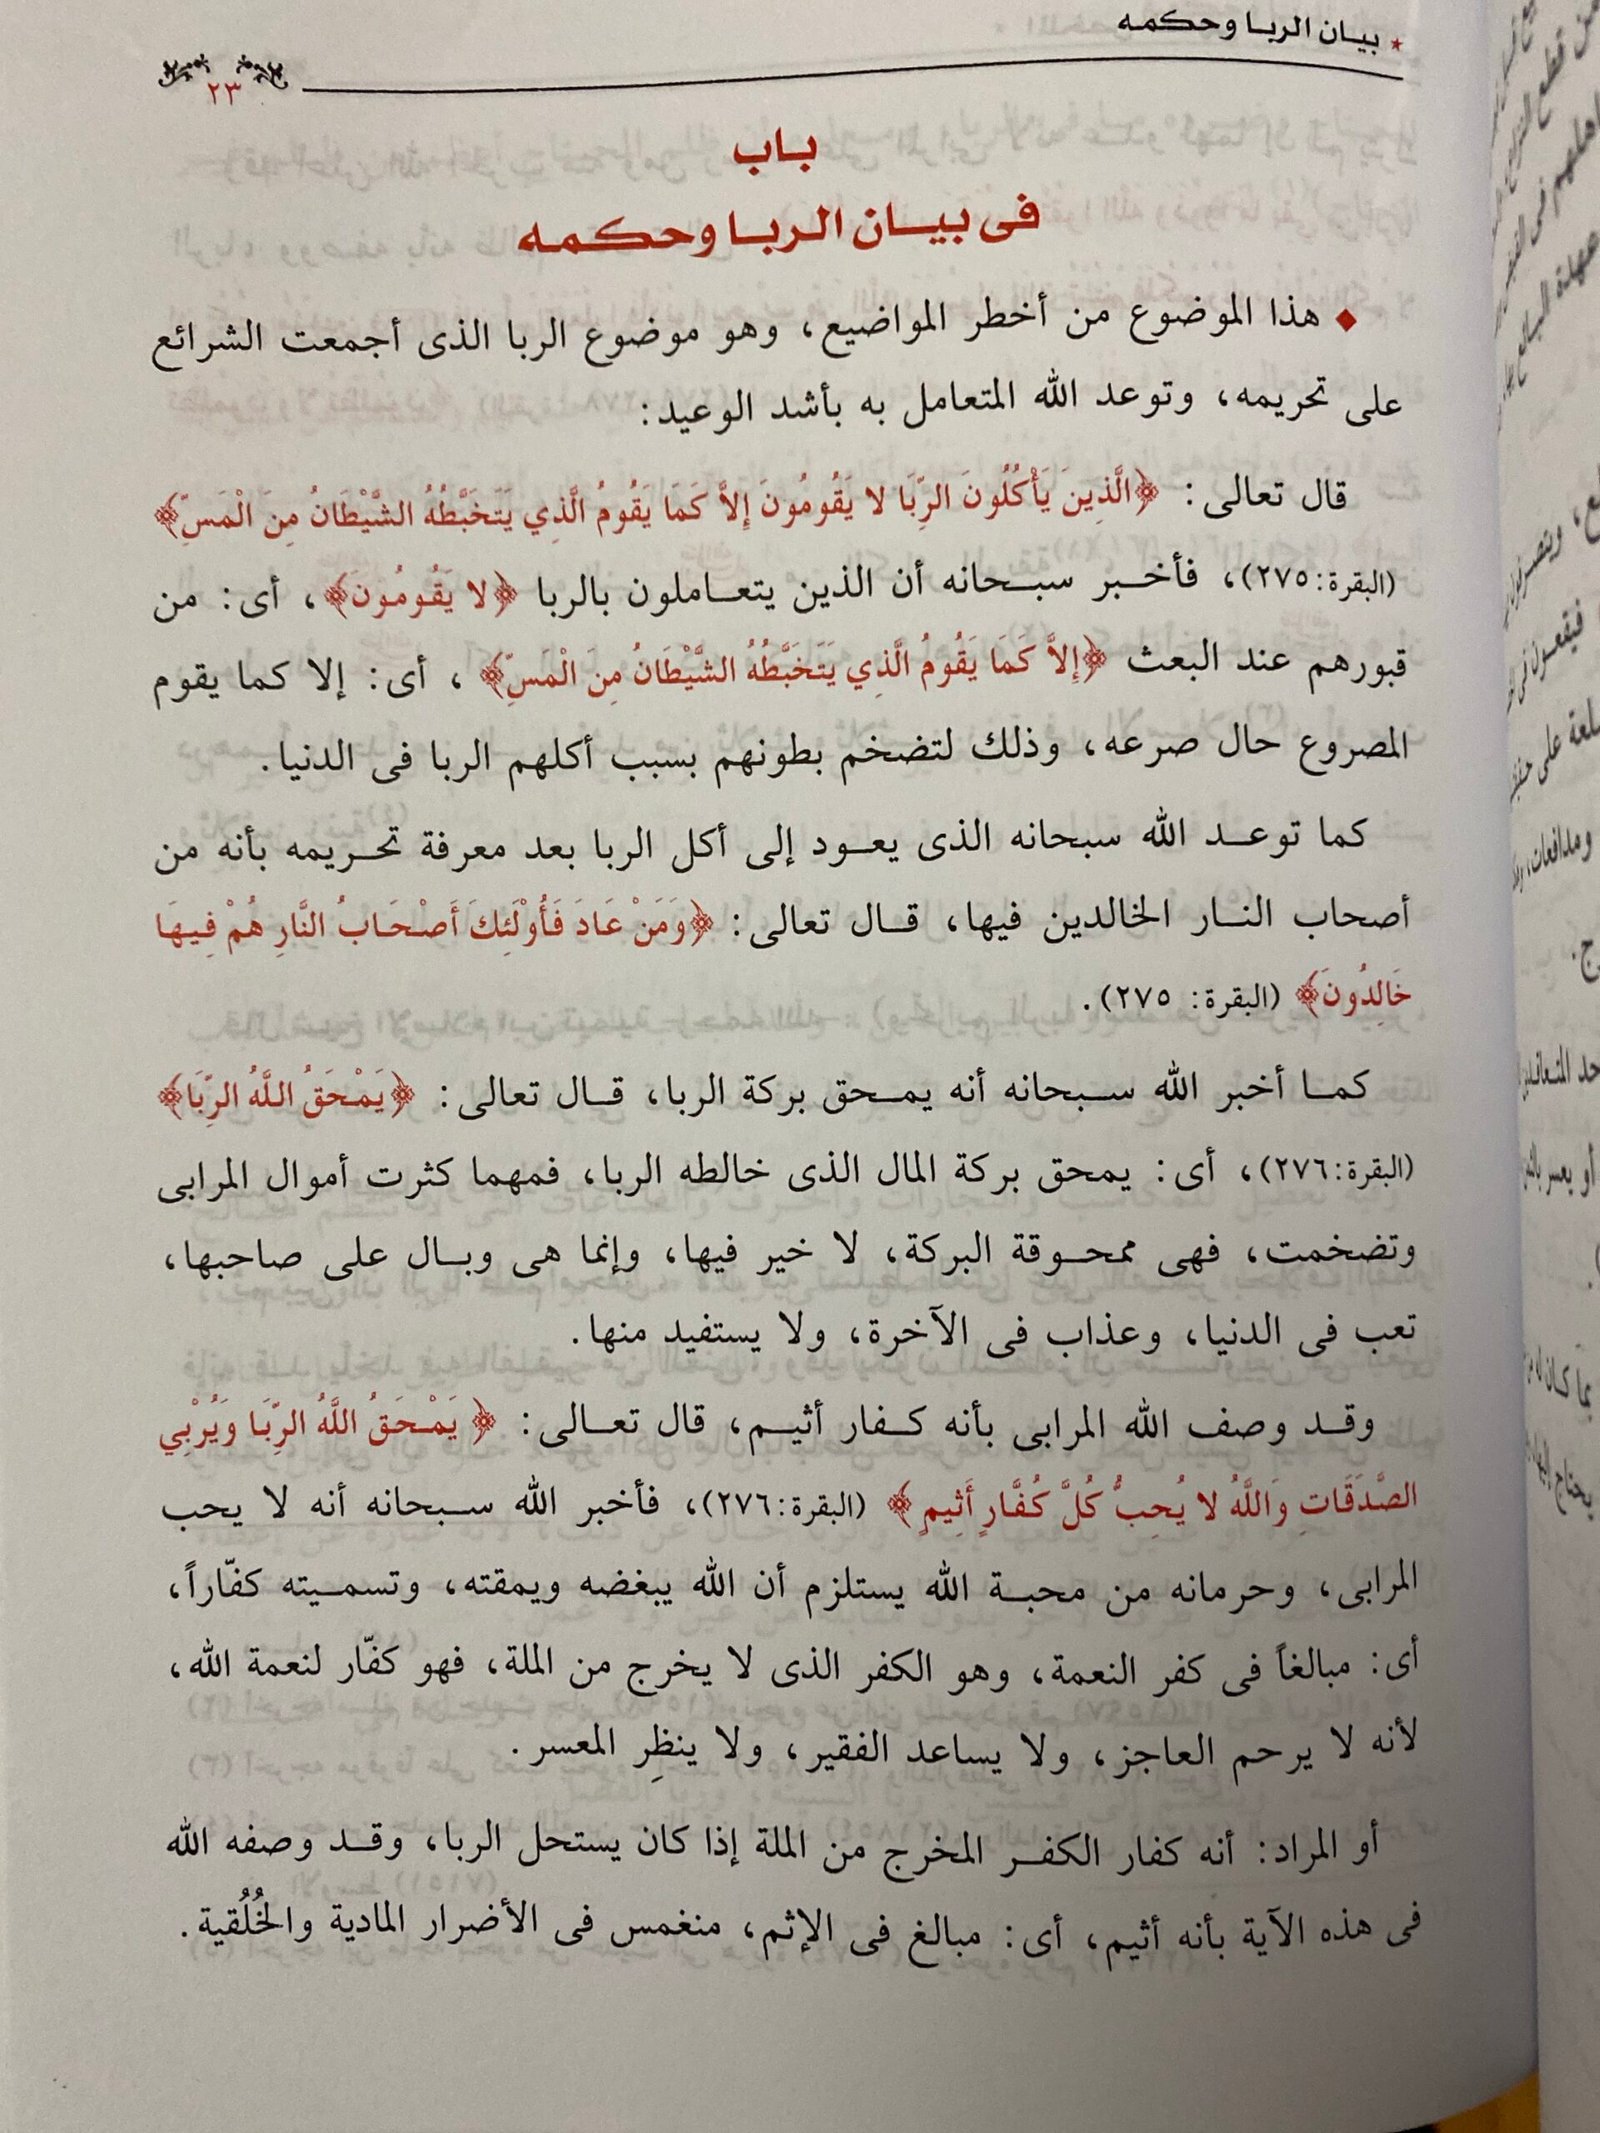 ٭ بيان الربا وحكمه
٢٣
باب
فى بيان الربا وحكمه
◆ هذا الموضوع من أخطر المواضيع، وهو موضوع الربا الذى أجمعت الشرائع
على تحريمه، وتوعد الله المتعامل به بأشد الوعيد:
قال تعالى: ﴿الَّذِينَ يَأْكُلُونَ الرِّبَا لا يَقُومُونَ إِلاَّ كَمَا يَقُومُ الَّذِي يَتَخَبَّطُهُ الشَّيْطَانُ مِنَ الْمَسِّ﴾
(البقرة:٢٧٥)، فأخبر سبحانه أن الذين يتعاملون بالربا ﴿لا يَقُومُونَ﴾، أى: من
قبورهم عند البعث ﴿إِلاَّ كَمَا يَقُومُ الَّذِي يَتَخَبَّطُهُ الشَّيْطَانُ مِنَ الْمَسِّ﴾ ، أى: إلا كما يقوم
المصروع حال صرعه، وذلك لتضخم بطونهم بسبب أكلهم الربا فى الدنيا.
كما توعد الله سبحانه الذى يعود إلى أكل الربا بعد معرفة تحريمه بأنه من
أصحاب النار الخالدين فيها، قال تعالى: ﴿وَمَنْ عَادَ فَأُوْلَئِكَ أَصْحَابُ النَّارِ هُمْ فِيهَا
خَالِدُونَ﴾ (البقرة: ٢٧٥).
كما أخبر الله سبحانه أنه يمحق بركة الربا، قال تعالى: ﴿يَمْحَقُ اللَّهُ الرِّبَا﴾
(البقرة:٢٧٦)، أى: يمحق بركة المال الذى خالطه الربا، فمهما كثرت أموال المرابى
وتضخمت، فهى ممحوقة البركة، لا خير فيها، وإنما هى وبال على صاحبها،
تعب فى الدنيا، وعذاب فى الآخرة، ولا يستفيد منها.
وقد وصف الله المرابى بأنه كفار أثيم، قال تعالى: ﴿ يَمْحَقُ اللَّهُ الرِّبَا وَيُرْبِي
الصَّدَقَاتِ وَاللَّهُ لا يُحِبُّ كُلَّ كُفَّارٍ أَثِيمٍ ﴾ (البقرة:٢٧٦)، فأخبر الله سبحانه أنه لا يحب
المرابى، وحرمانه من محبة الله يستلزم أن الله يبغضه ويمقته، وتسميته كفّاراً،
أى: مبالغاً فى كفر النعمة، وهو الكفر الذى لا يخرج من الملة، فهو كفّار لنعمة الله،
لأنه لا يرحم العاجز، ولا يساعد الفقير، ولا ينظِر المعسر.
أو المراد: أنه كفار الكفر المخرج من الملة إذا كان يستحل الربا، وقد وصفه الله
فى هذه الآية بأنه أثيم، أى: مبالغ فى الإثم، منغمس فى الأضرار المادية والخُلُقية.